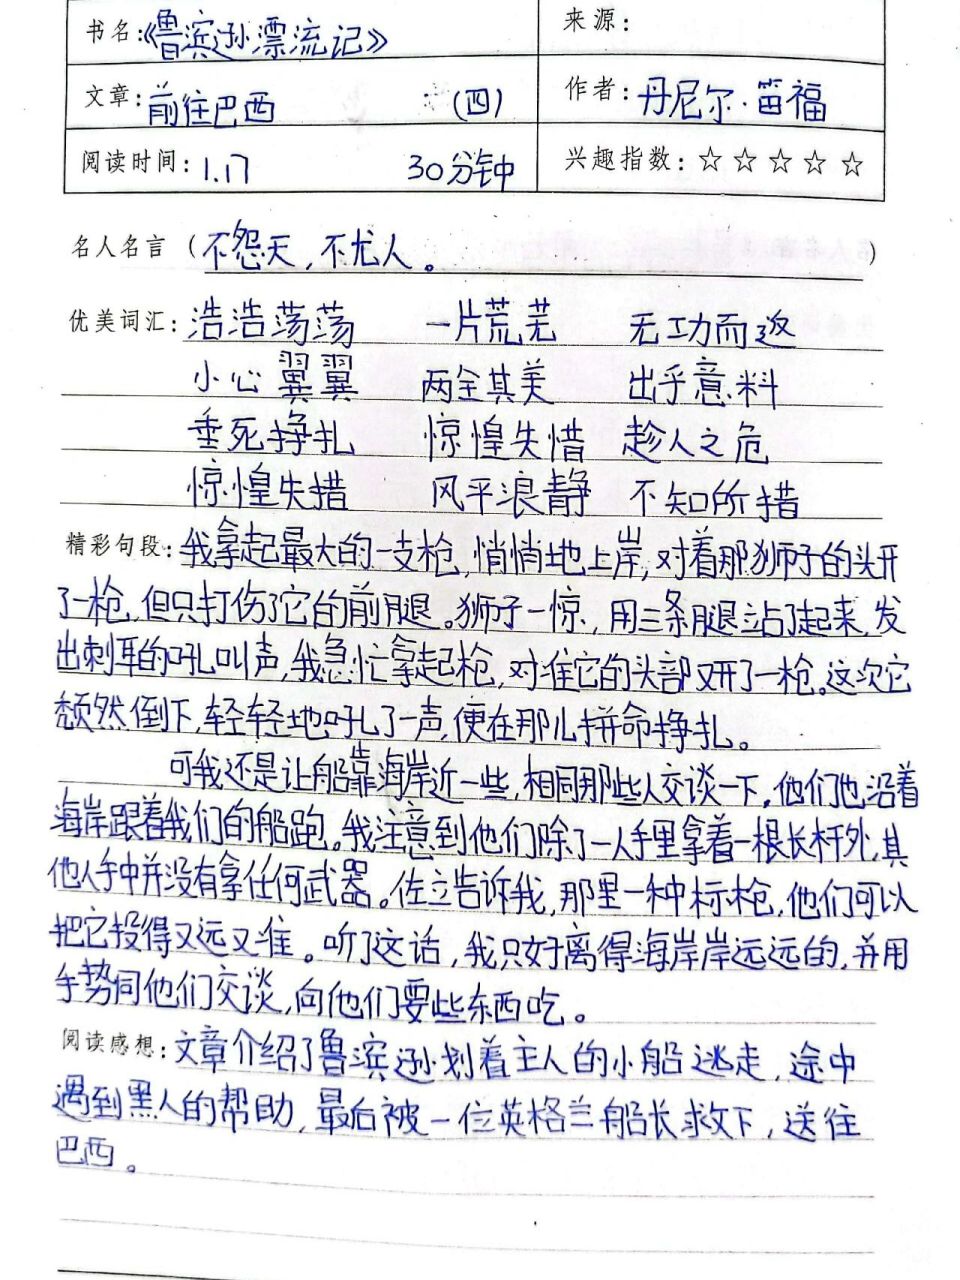 书名:《鲁滨逊漂流记》 来源:
文章:前往巴西 (四) 作者:丹尼尔·笛福
阅读时间:1.17 30分钟 兴趣指数:☆☆☆☆☆
名人名言(不怨天,不尤人。)
优美词汇:浩浩荡荡 一片荒芜 无功而返
小心翼翼 两全其美 出乎意料
垂死挣扎 惊惶失惜 趁人之危
惊惶失措 风平浪静 不知所措
精彩句段:我拿起最大的一支枪,悄悄地上岸,对着那狮子的头开
了一枪,但只打伤了它的前腿。狮子一惊,用三条腿站了起来,发
出刺耳的吼叫声,我急忙拿起枪,对准它的头部又开了一枪。这次它
颓然倒下,轻轻地吼了一声,便在那儿拼命挣扎。
可我还是让船靠海岸近一些,相同那些人交谈一下。他们也沿着
海岸跟着我们的船跑。我注意到他们除了一人手里拿着一根长杆外,其
他人手中并没有拿任何武器。佐立告诉我,那里一种标枪,他们可以
把它投得又远又准。听了这话,我只好离得海岸岸远远的,并用
手势同他们交谈,向他们要些东西吃。
阅读感想:文章介绍了鲁滨逊划着主人的小船逃走,途中
遇到黑人的帮助,最后被一位英格兰船长救下,送往
巴西。